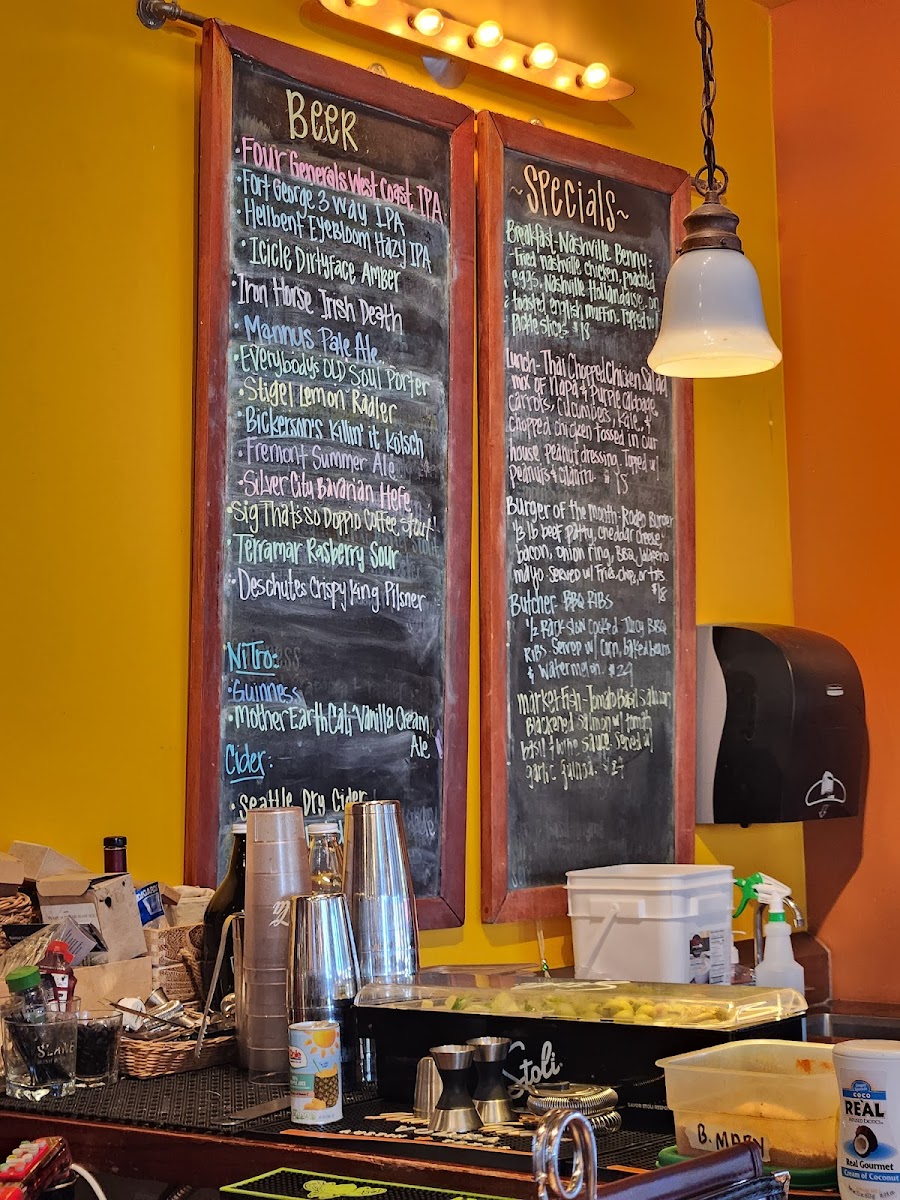 BEER
• Four Generals West Coast IPA
• Fort George 3 way IPA
• Hellbent Eyebloom Hazy IPA
• Icicle Dirtyface Amber
• Iron Horse Irish Death
• Mannys Pale Ale
• Everybodys OLD Soul Porter
• Stigel Lemon Radler
• Bickerson's Killin' it Kolsch
• Fremont Summer Ale
• Silver City Bavarian Hefe
• Sig Thats So Doppio Coffee Stout
• Terramar Rasberry Sour
• Deschutes Crispy King Pilsner
NiTro:
• Guinness
• Mother Earth Cali Vanilla Cream
Ale
Cider:
• Seattle Dry Cider
~Specials~
Breakfast- Nashville Benny:
-fried nashville chicken, poached
eggs, Nashville Hollandaise, on
toasted english muffin. Topped w/
pickle slices $18
Lunch- Thai Chopped Chicken Salad
mix of napa & purple cabbage,
carrots, cucumbers, kale, &
chopped chicken tossed in our
house peanut dressing. Topped w/
peanuts & cilantro. $18
Burger of the month- Rodeo Burger
1/3 lb beef patty, cheddar cheese
bacon, onion ring, BBQ, Jalapeño
mayo served w/ Fries, chips, or tots
$18
Butcher- BBQ RIBS
1/2 Rack slow cooked Juicy BBQ
Ribs. Served w/ Corn, baked beans
& watermelon. $29
market Fish- Tomato Basil Salmon
Blackened Salmon w/ tomato
basil & wine sauce. Served w/
garlic quinoa. $27
Stoli
B. MARY
Dole
COCO
REAL
Real Gourmet
Cream of Coconut